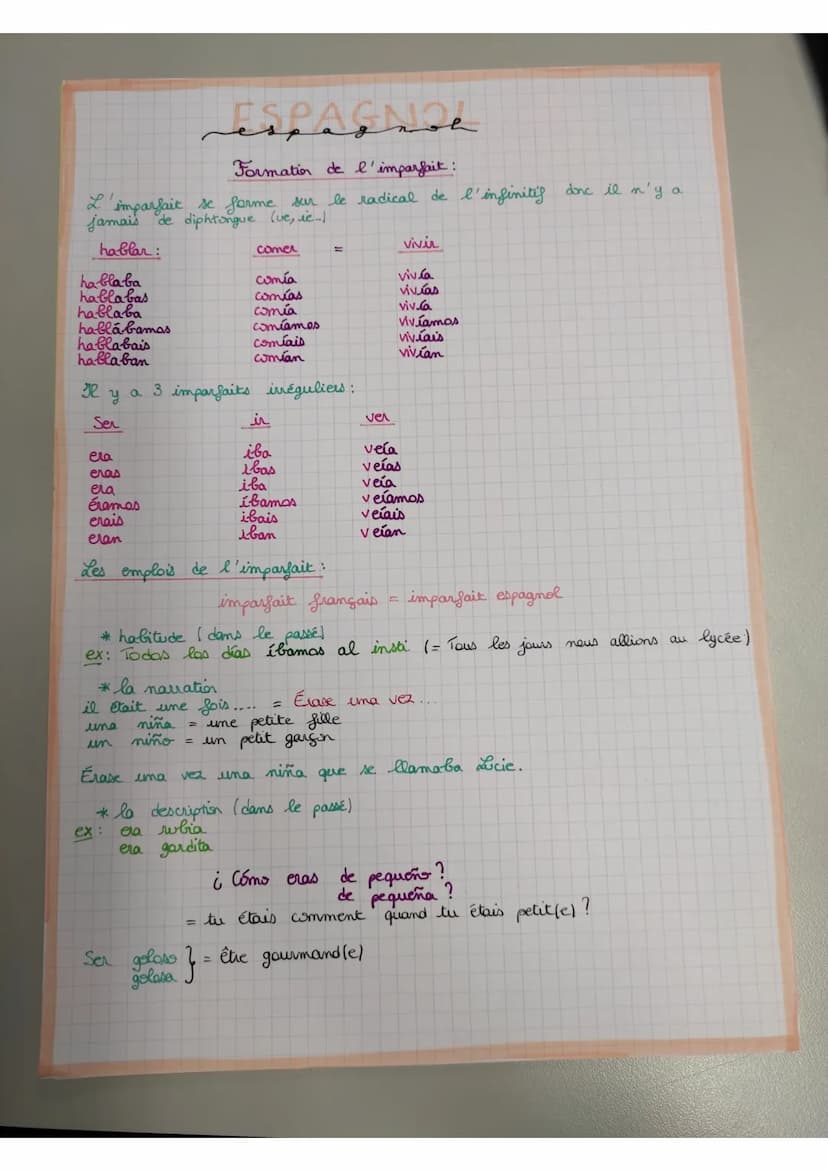 ESPAGNOL
espagnol
Formation de l'imparfait :
L'imparfait se forme sur le radical de l'infinitif donc il n'y a
jamais de diphtongue (ue, ie...)
hablar : comer = vivir
hablaba comía vivía
hablabas comías vivías
hablaba comía vivía
hablábamos comíamos vivíamos
hablabais comíais vivíais
hablaban comían vivían
Il y a 3 imparfaits irréguliers :
Ser ir ver
era iba veía
eras ibas veías
era iba veía
éramos íbamos veíamos
erais ibais veíais
eran iban veían
Les emplois de l'imparfait :
imparfait français = imparfait espagnol
* habitude (dans le passé)
ex : Todos los días íbamos al insti (= Tous les jours nous allions au lycée)
* la narration
il était une fois.... = Érase una vez...
una niña = une petite fille
un niño = un petit garçon
Érase una vez una niña que se llamaba Lucie.
* la description (dans le passé)
ex : era rubia
era gordita
¿ Cómo eras de pequeño ?
de pequeña ?
= tu étais comment quand tu étais petit(e) ?
Ser goloso } = être gourmand(e)
golosa